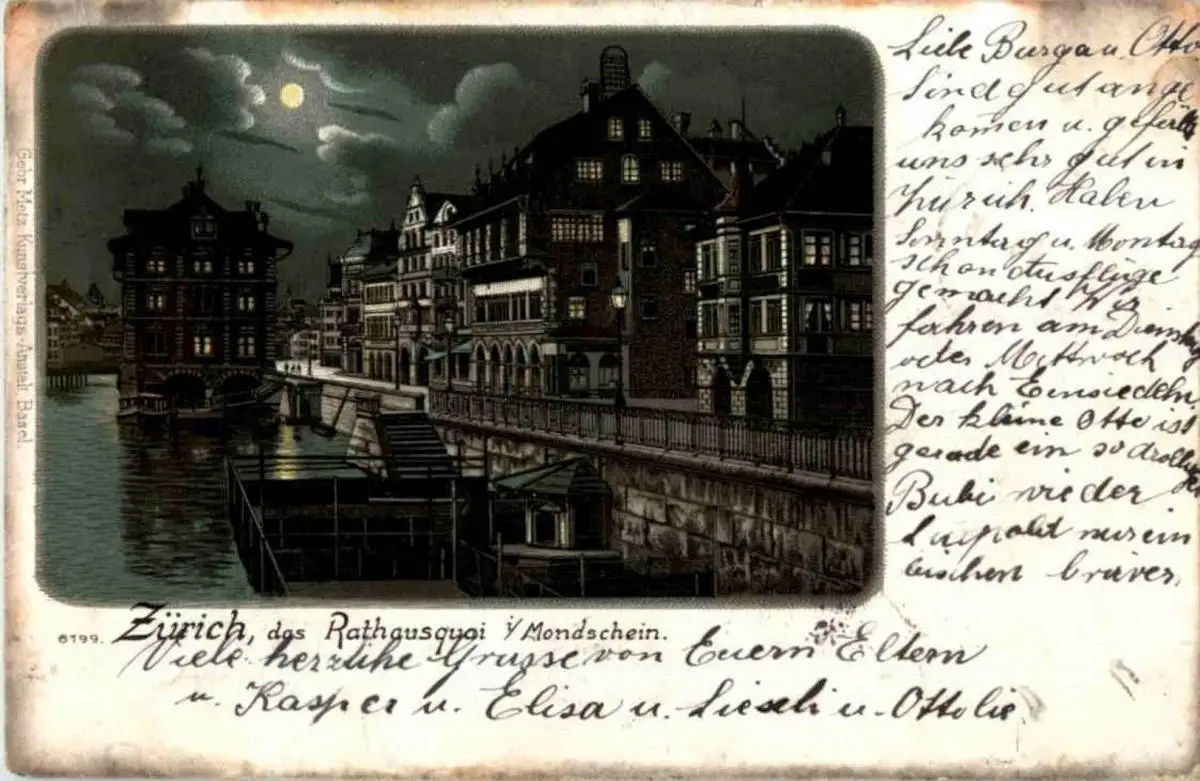 Liebe Burga u. Otto
Sind gut ange
komen u. gefällt
uns sehr gut in
Zürich. Haben
Sonntag u. Montag
schon Ausflüge
gemacht Wir
fahren am Dienstag
oder Mittwoch
nach Einsiedeln
Der kleine Otto ist
gerade ein so drolliger
Bubi wie der
Luipold nur ein
bischen braver.
Gebr. Metz, Kunstverlags-Anstalt, Basel.
6199. Zürich, das Rathausquai i/Mondschein.
Viele herzliche Grüsse von Euern Eltern
u. Kasper u. Elisa u. Lieseli u. Ottolie